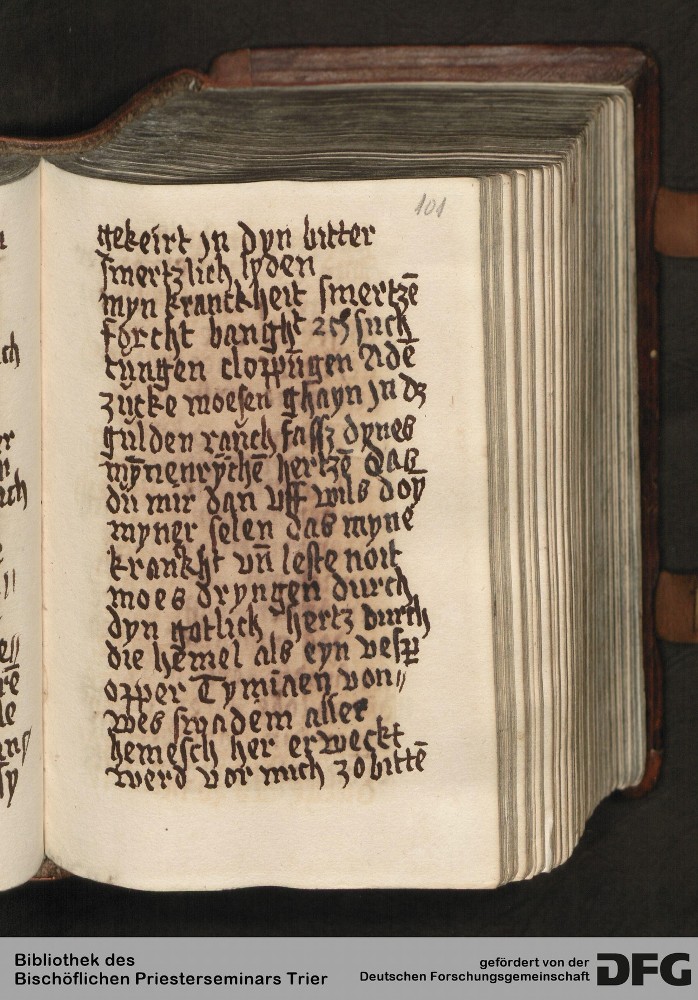 101
gekeirt jn dyn bitter
smertzlich lyden
myn kranckheit smertzē
forcht banght suck
tungen clopp̄ngen Adē
zucke moesen ghayn jn dz
gulden rauch fassz dynes
mȳnenrychē hertzē das
du mir dan vff wils doy
myner selen das myne
krankht vn̄ leste noit
moes dryngen durch
dyn gotlich hertz durch
die hemel als eyn
opper Tymiaen von〃
wes smadem aller
hemesch her erweckt
werd vor mich zo bittē
Bibliothek des
Bischöflichen Priesterseminars Trier
gefördert von der
Deutschen Forschungsgemeinschaft
DFG